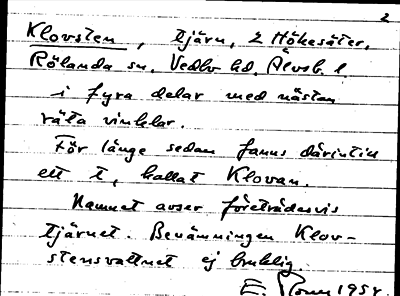 2
Klovsten, tjärn, 2 Hökesäter,
Rölanda sn. Vedbo hd. Älvsb. l.
i fyra delar med nästan
räta vinklar.
För länge sedan fanns därintill
ett t, kallat Klovan.
Namnet avser företrädesvis
tjärnet. Benämningen Klov-
stensvattnet ej bruklig.
E. 1958.